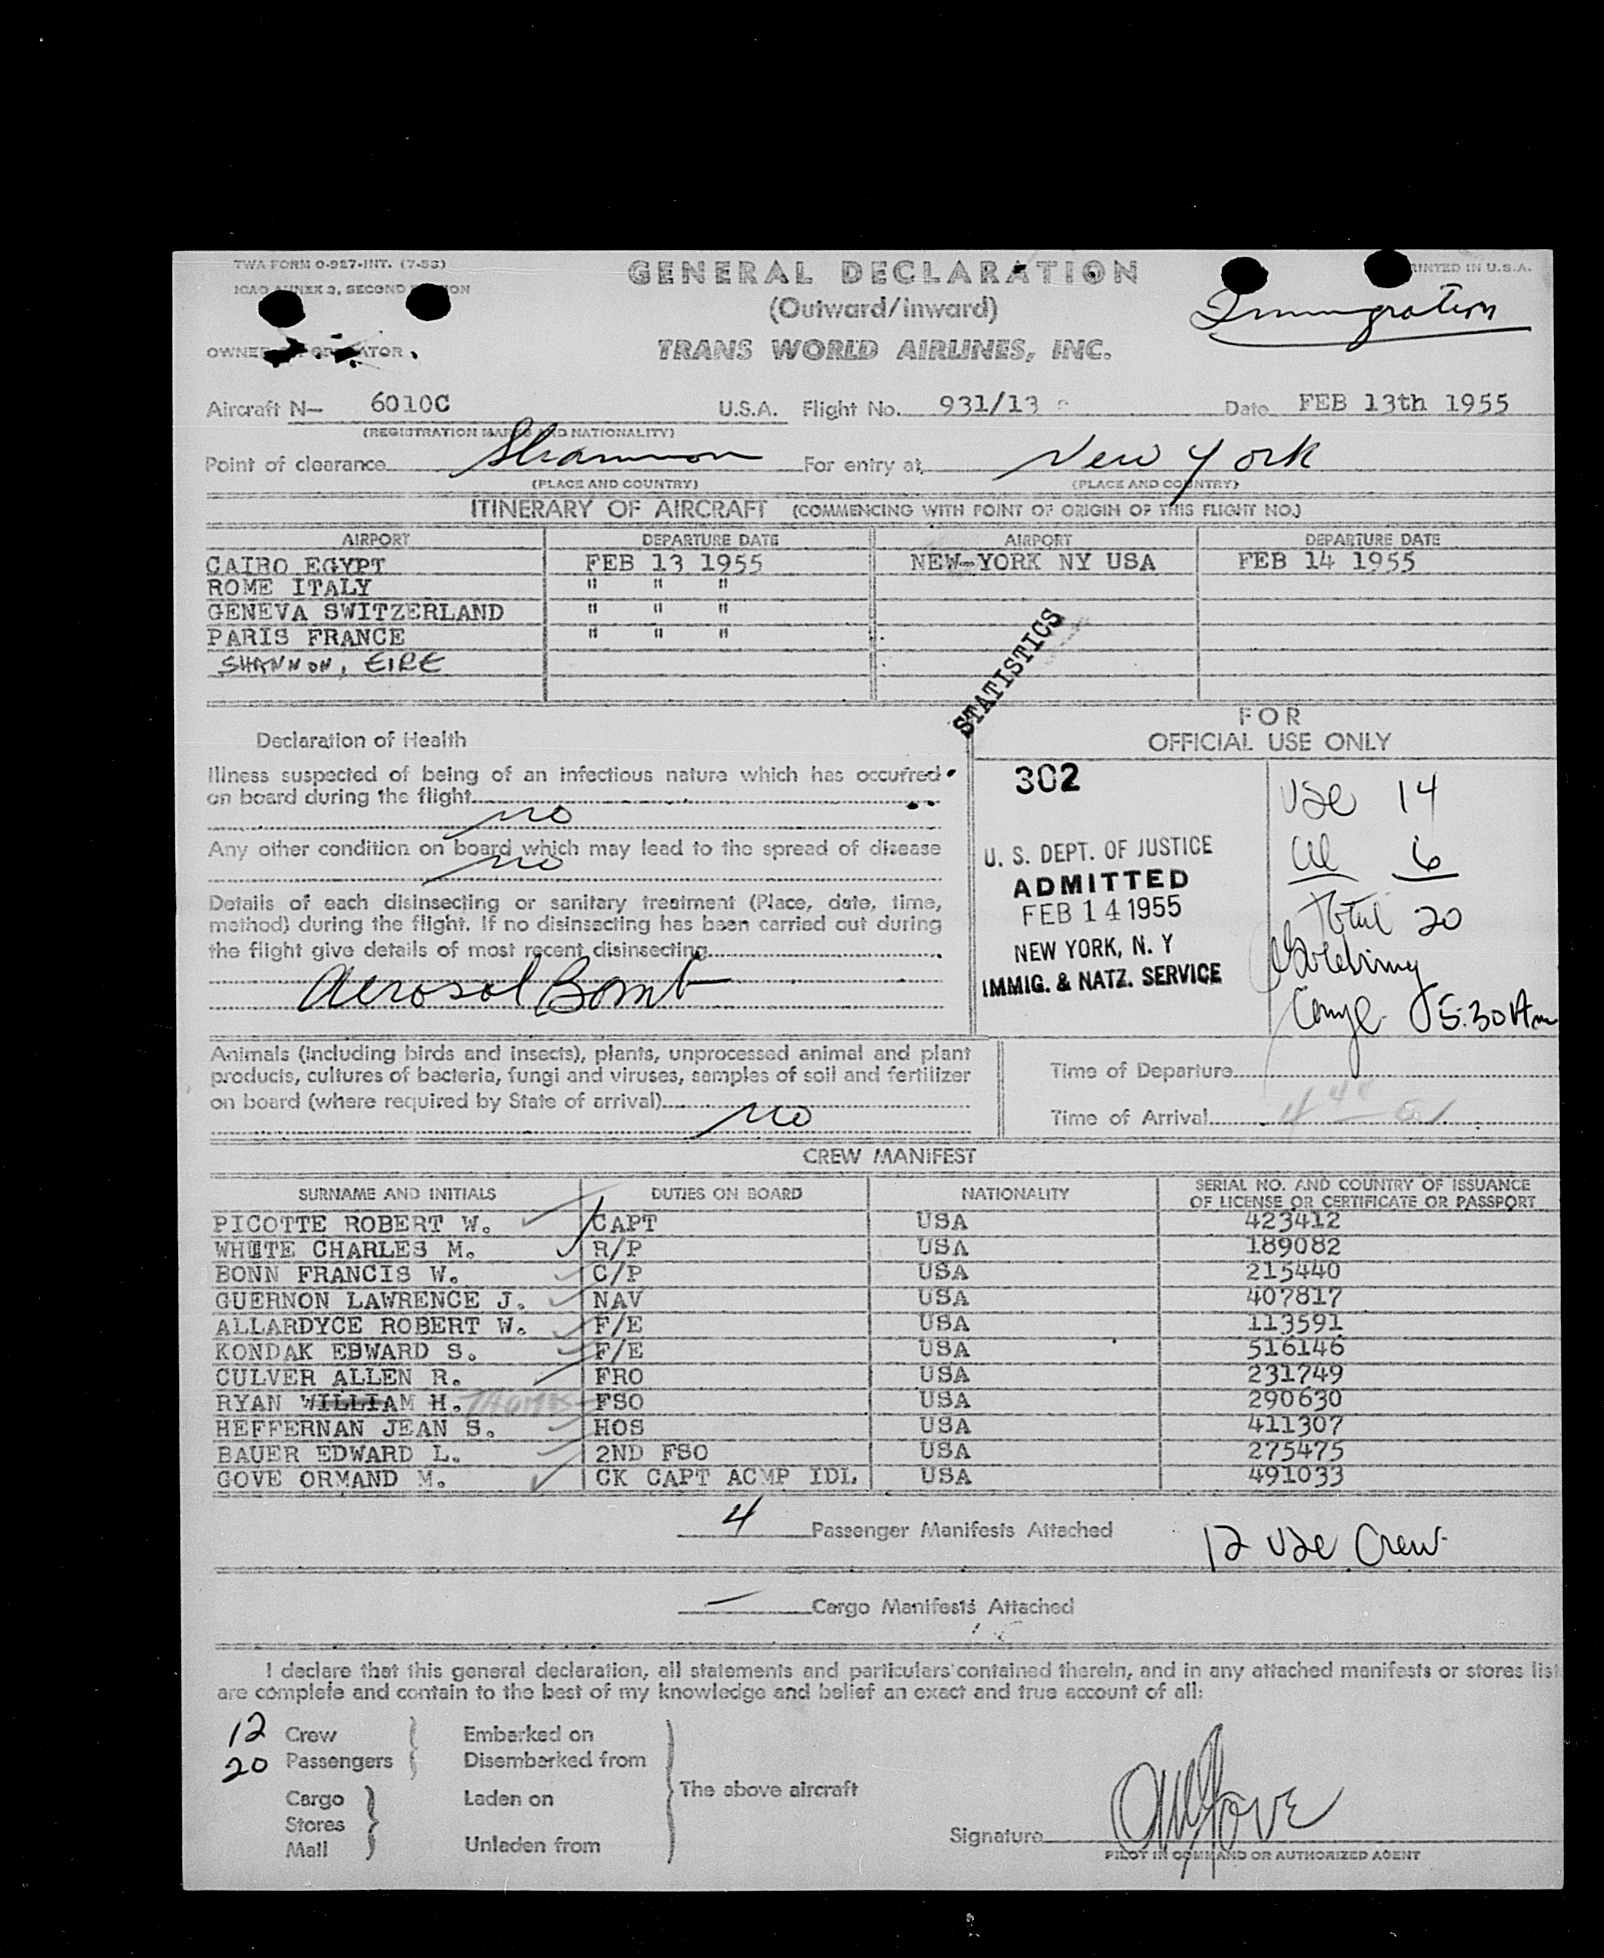 TWA FORM O-927-INT. (7-53)
GENERAL DECLARATION
PRINTED IN U.S.A.
ICAO ANNEX 9, SECOND EDITION
(Outward/inward)
Immigration
OWNER OR OPERATOR
TRANS WORLD AIRLINES, INC.
Aircraft N— 6010C U.S.A. Flight No. 931/13 Date FEB 13th 1955
(REGISTRATION MARKS AND NATIONALITY)
Point of clearance Shannon For entry at New York
(PLACE AND COUNTRY) (PLACE AND COUNTRY)
ITINERARY OF AIRCRAFT (COMMENCING WITH POINT OF ORIGIN OF THIS FLIGHT NO.)
AIRPORT DEPARTURE DATE AIRPORT DEPARTURE DATE
CAIRO EGYPT FEB 13 1955 NEW-YORK NY USA FEB 14 1955
ROME ITALY " " "
GENEVA SWITZERLAND " " "
PARIS FRANCE " " "
SHANNON, EIRE
STATISTICS
FOR
OFFICIAL USE ONLY
Declaration of Health
Illness suspected of being of an infectious nature which has occurred
on board during the flight
no
Any other condition on board which may lead to the spread of disease
no
Details of each disinsecting or sanitary treatment (Place, date, time,
method) during the flight. If no disinsecting has been carried out during
the flight give details of most recent disinsecting
Aerosol Bomb
302
U. S. DEPT. OF JUSTICE
ADMITTED
FEB 14 1955
NEW YORK, N. Y
IMMIG. & NATZ. SERVICE
USC 14
al 6
Total 20
5.30 Am
Animals (including birds and insects), plants, unprocessed animal and plant
products, cultures of bacteria, fungi and viruses, samples of soil and fertilizer
on board (where required by State of arrival)
no
Time of Departure
Time of Arrival
CREW MANIFEST
SURNAME AND INITIALS DUTIES ON BOARD NATIONALITY SERIAL NO. AND COUNTRY OF ISSUANCE
OF LICENSE OR CERTIFICATE OR PASSPORT
PICOTTE ROBERT W. CAPT USA 423412
WHITE CHARLES M. R/P USA 189082
BONN FRANCIS W. C/P USA 215440
GUERNON LAWRENCE J. NAV USA 407817
ALLARDYCE ROBERT W. F/E USA 113591
KONDAK EDWARD S. F/E USA 516146
CULVER ALLEN R. FRO USA 231749
RYAN WILLIAM H. THOMAS FSO USA 290630
HEFFERNAN JEAN S. HOS USA 411307
BAUER EDWARD L. 2ND FSO USA 275475
GOVE ORMAND M. CK CAPT ACMP IDL USA 491033
4 Passenger Manifests Attached
12 USC Crew
— Cargo Manifests Attached
I declare that this general declaration, all statements and particulars contained therein, and in any attached manifests or stores list
are complete and contain to the best of my knowledge and belief an exact and true account of all:
12 Crew Embarked on
20 Passengers Disembarked from
The above aircraft
Cargo Laden on
Stores
Mail Unladen from
Signature OM Gove
PILOT IN COMMAND OR AUTHORIZED AGENT